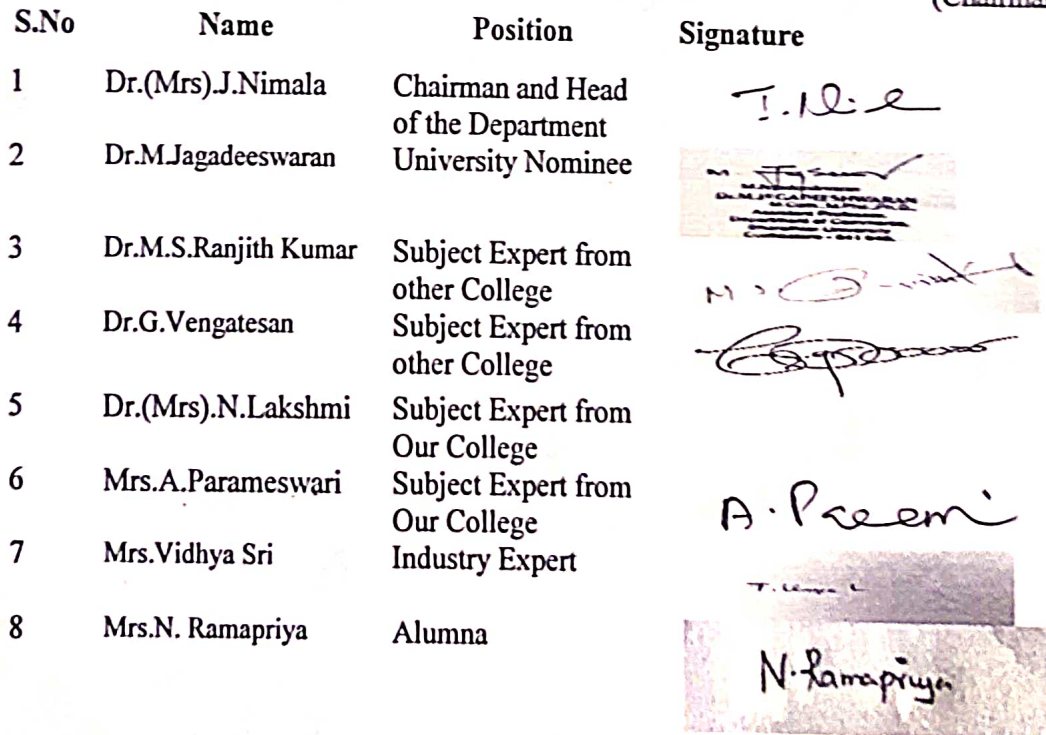 S.No Name Position Signature
1 Dr.(Mrs).J.Nimala Chairman and Head
of the Department
2 Dr.M.Jagadeeswaran University Nominee
3 Dr.M.S.Ranjith Kumar Subject Expert from
other College
4 Dr.G.Vengatesan Subject Expert from
other College
5 Dr.(Mrs).N.Lakshmi Subject Expert from
Our College
6 Mrs.A.Parameswari Subject Expert from
Our College
7 Mrs.Vidhya Sri Industry Expert
8 Mrs.N. Ramapriya Alumna
N. Ramapriya